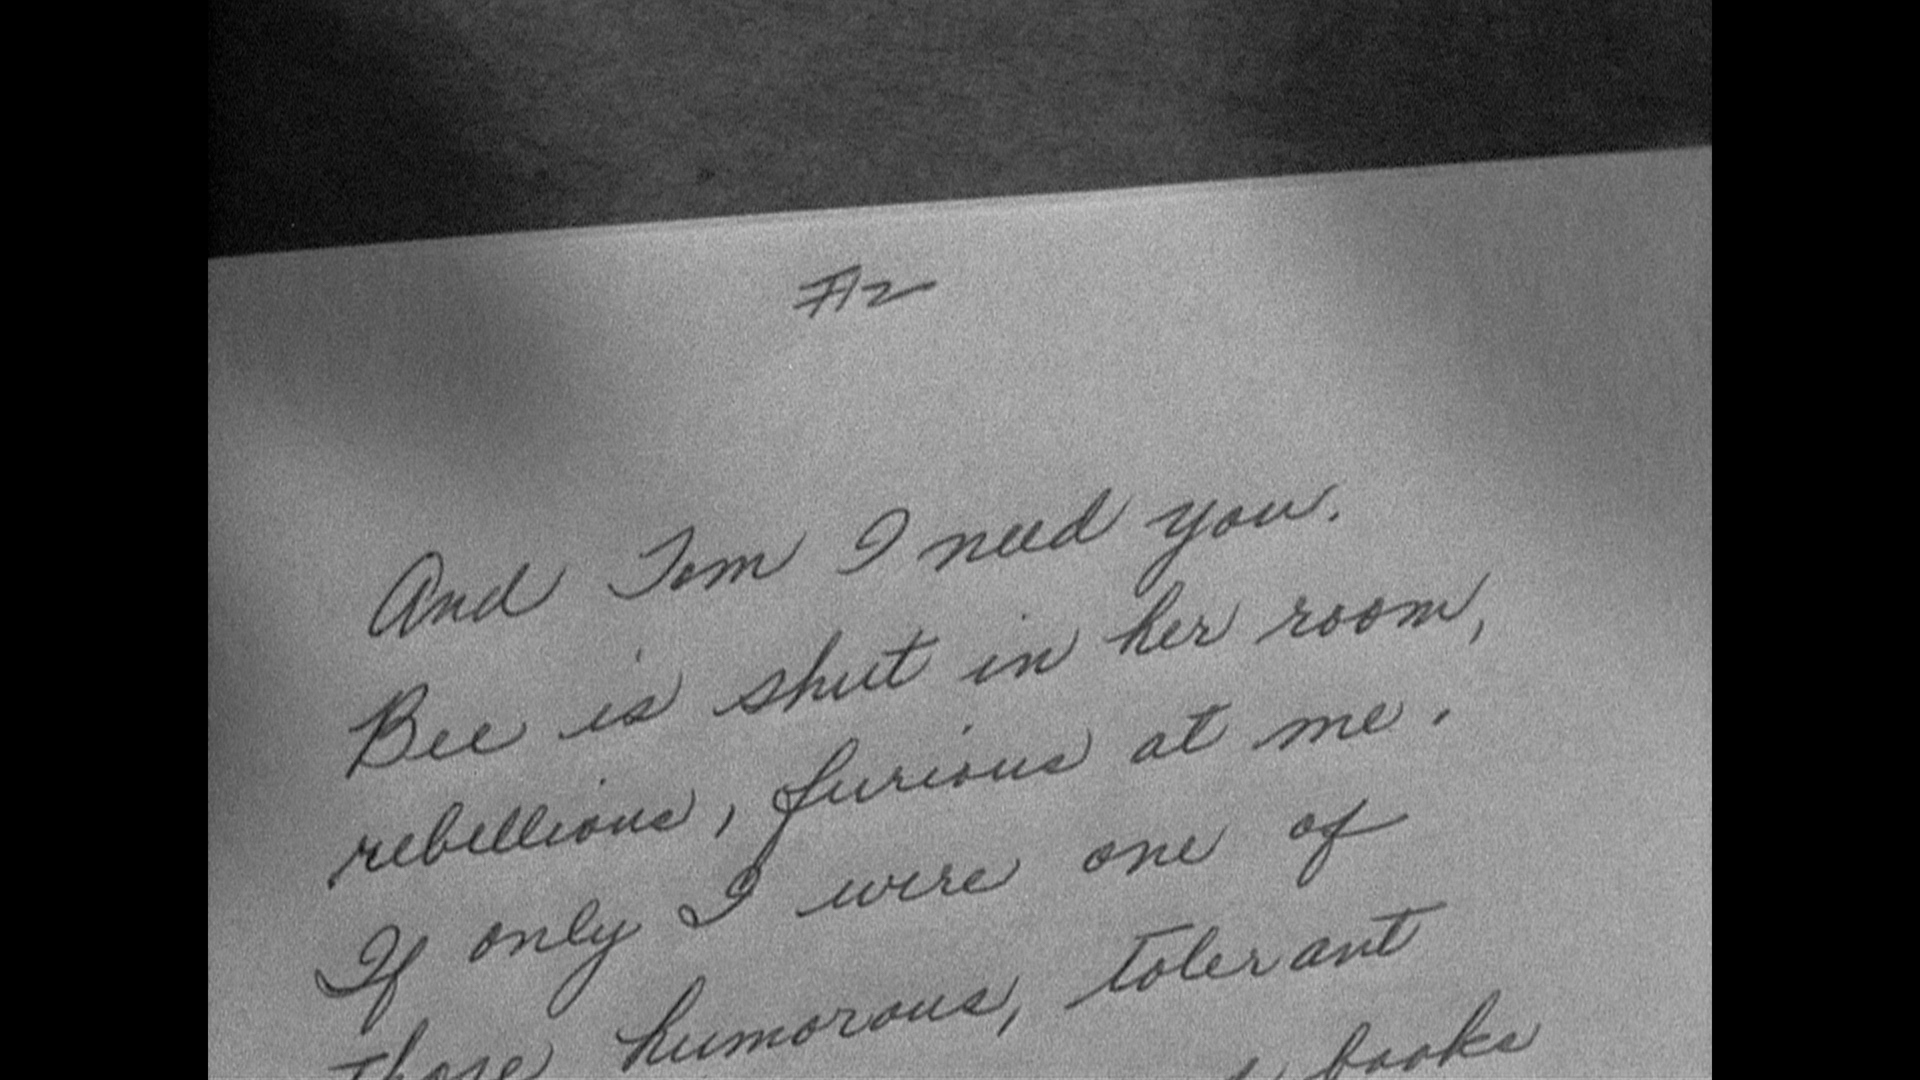 #2
And Tom I need you.
Bee is shut in her room,
rebellious, furious at me.
If only I were one of
those humorous, tolerant
books